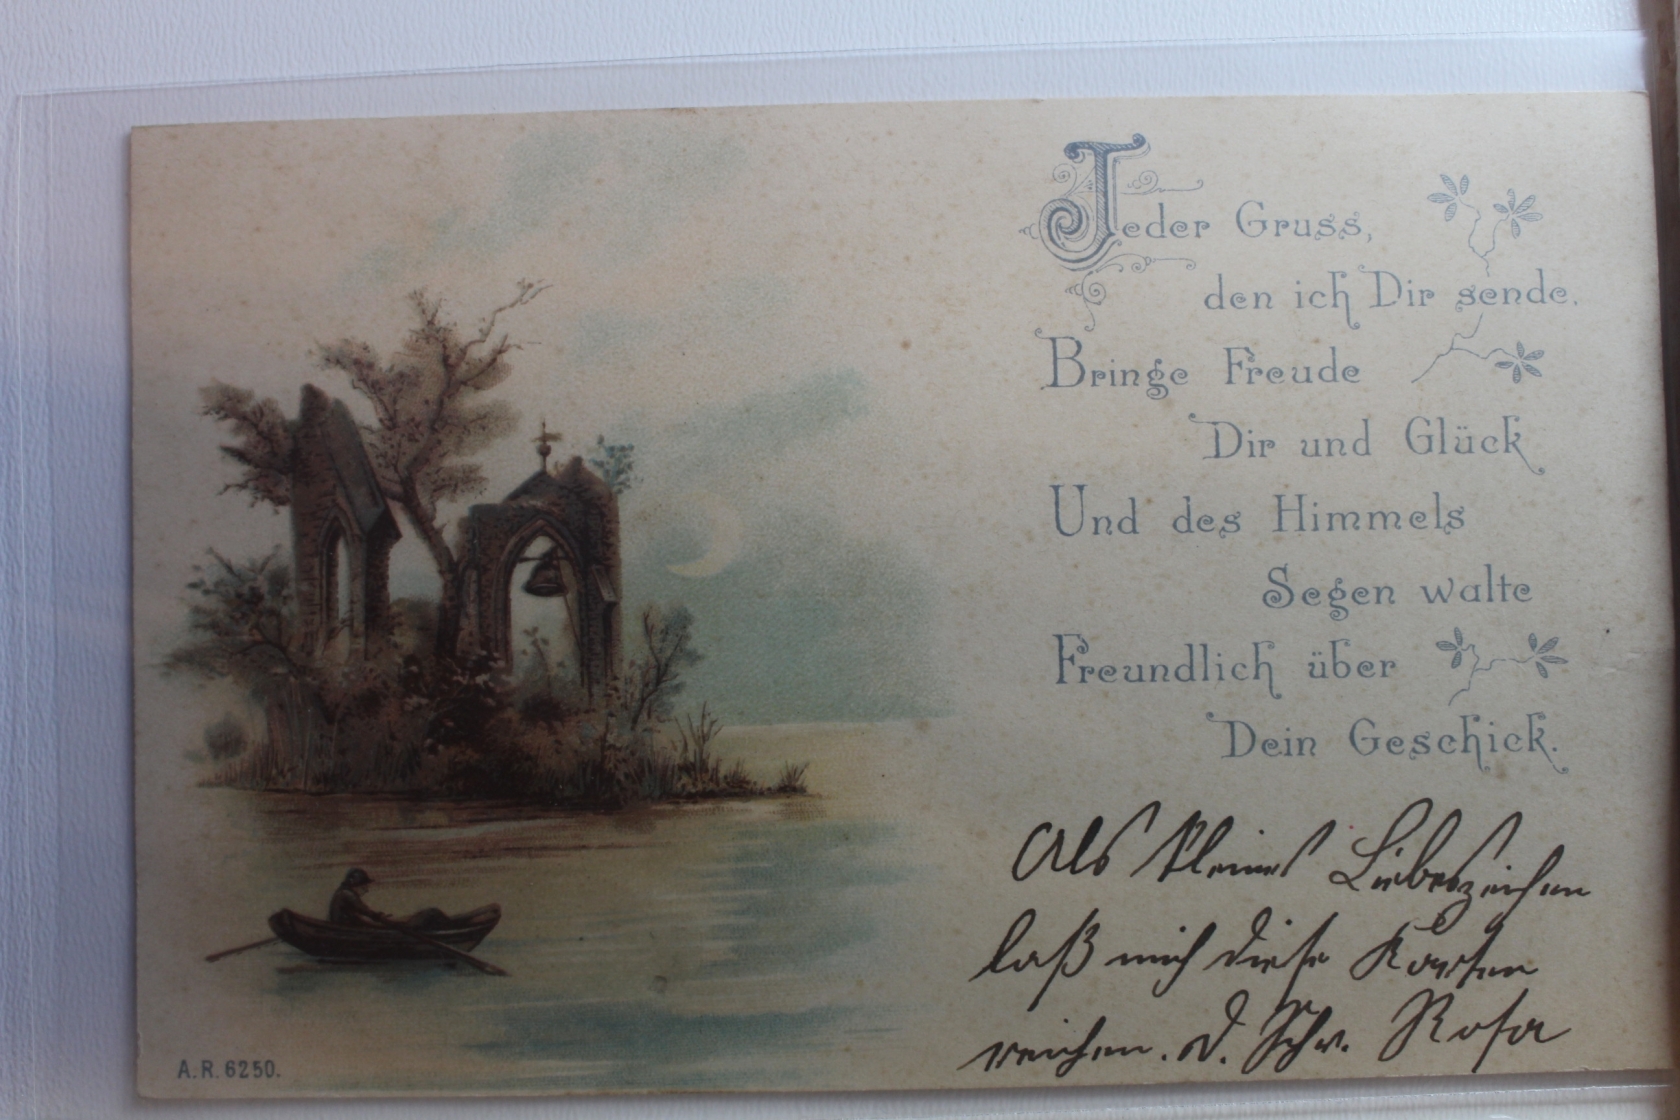 Jeder Gruss,
den ich Dir sende,
Bringe Freude
Dir und Glück
Und des Himmels
Segen walte
Freundlich über
Dein Geschick.
Als kleines Liebeszeichen
laß mich diese Karten
reichen. d. Schw. Rosa
A.R. 6250.